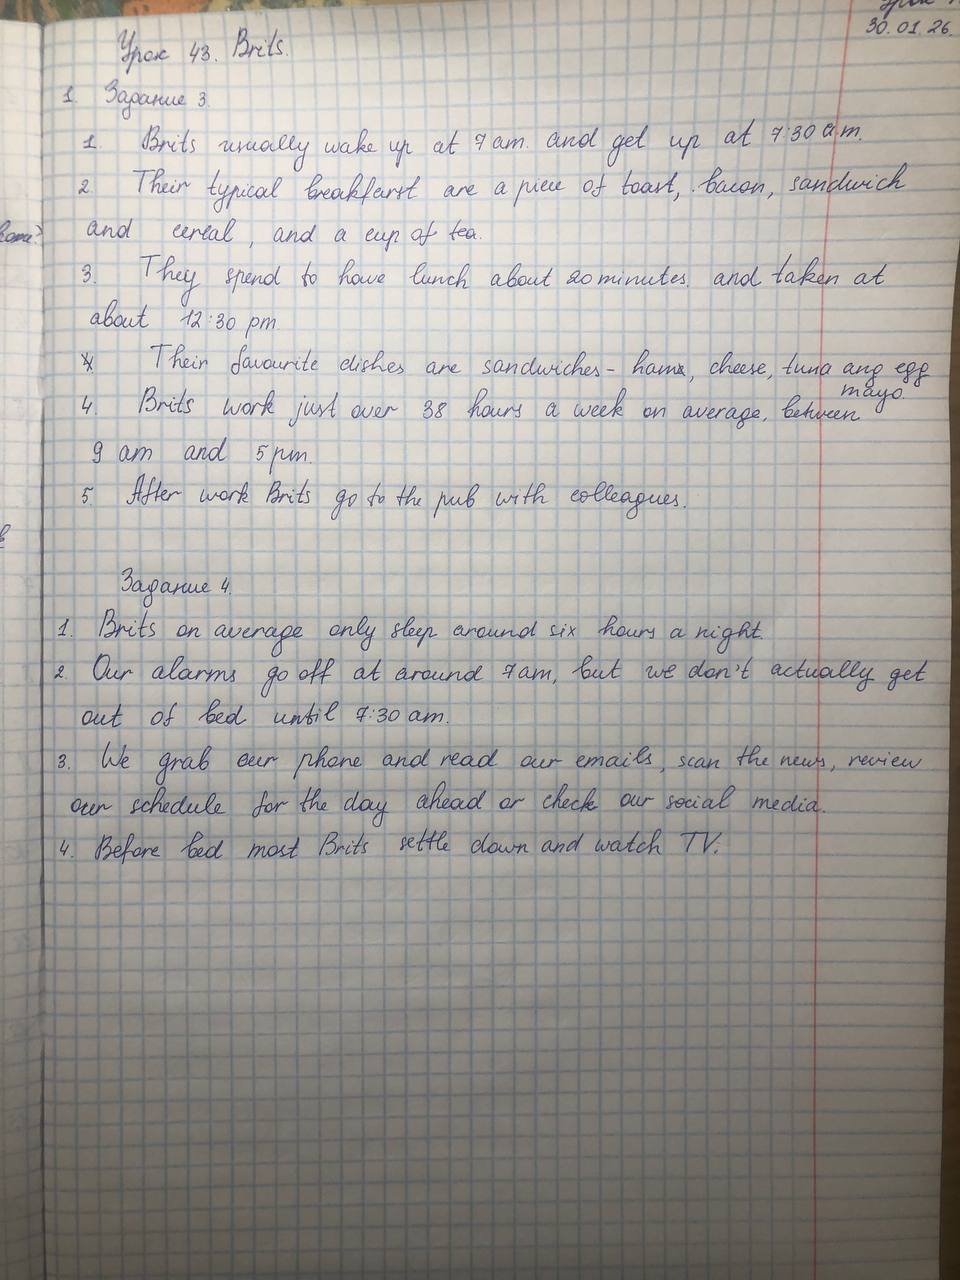 30.01.26.
Урок 43. Brits.
1. Задание 3.
1. Brits usually wake up at 7 am. and get up at 7:30 a.m.
2. Their typical breakfarst are a piece of toast, bacon, sandwich
and cereal, and a cup of tea.
3. They spend to have lunch about 20 minutes. and taken at
about 12:30 pm
Their favourite dishes are sandwiches - ham, cheese, tuna ang egg
mayo.
4. Brits work just over 38 hours a week on average, between
9 am and 5 pm.
5. After work Brits go to the pub with colleagues.
Задание 4.
1. Brits on average only sleep around six hours a night.
2. Our alarms go off at around 7am, but we don't actually get
out of bed until 7:30 am.
3. We grab our phone and read our emails, scan the news, review
our schedule for the day ahead or check our social media.
4. Before bed most Brits settle down and watch TV.